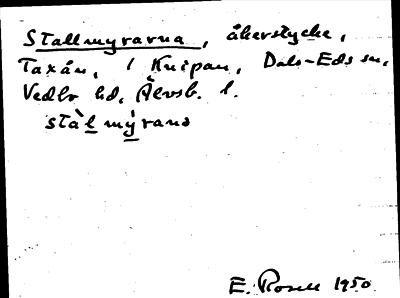 Stallmyrarna, åkerstycke,
Taxån, 1 Knipan, Dals-Eds sn,
Vedbo hd, Älvsb. l.
stàl mỳrana
E. Rosell 1950